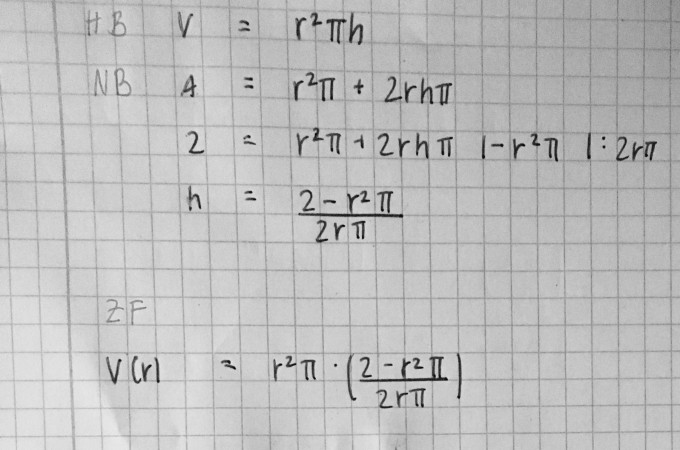 HB V = r²πh
NB A = r²π + 2rhπ
2 = r²π + 2rhπ |-r²π |:2rπ
h = (2-r²π)/(2rπ)
ZF
V(r) = r²π · ((2-r²π)/(2rπ))